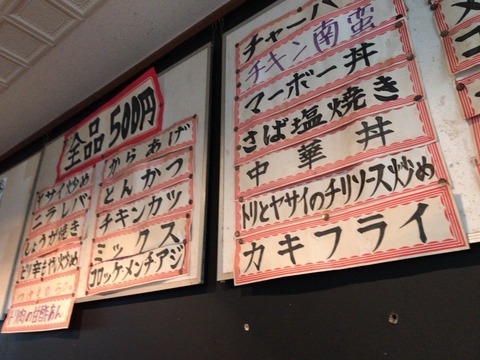 全品500円
ヤサイ炒め
ニラレバ
しょうが焼き
とり辛もやし炒め
トリ肉の甘酢あん
からあげ
とんかつ
チキンカツ
ミックス
コロッケ・メンチ・アジ
チャーハ
チキン南蛮
マーボー丼
さば塩焼き
中華丼
トリとヤサイのチリソース炒め
カキフライ